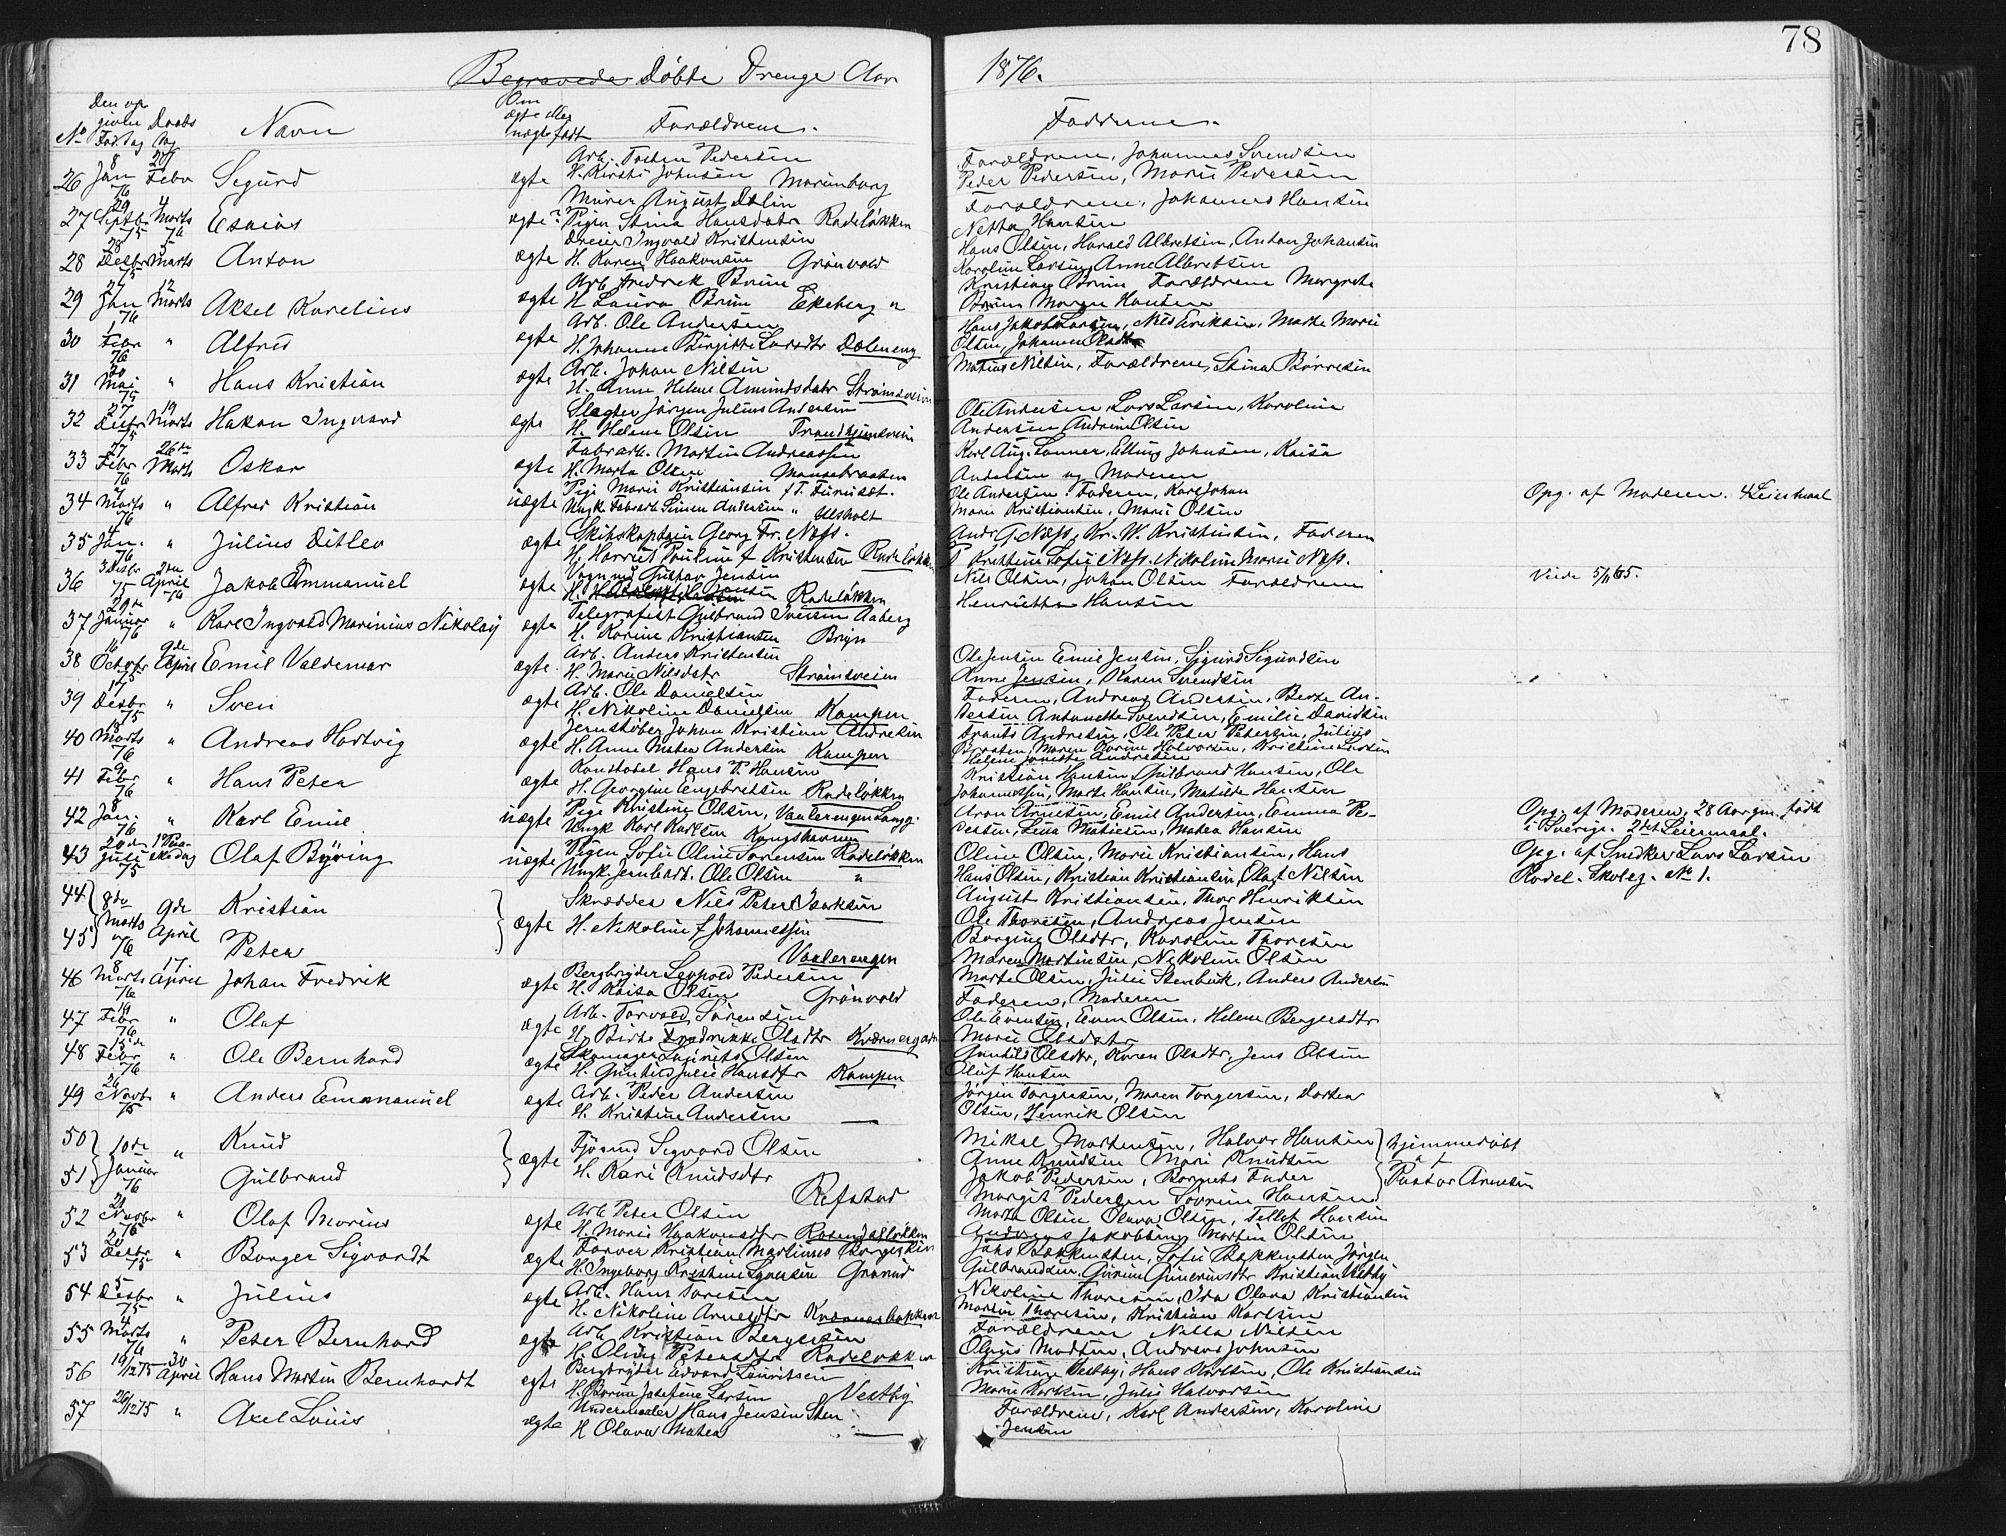 78
Begravede Døbte Drenge Aar 1876.
No Den opgivne Fødsdag Daabs Dag Navn Om ægte eller uægte født Forældrene. Fadderne.
26 8 Jan 76 20 Febr Sigurd ægte Arb. Pedersen
H. Kirsti Johnsen
Forældrene, Johannes Svendsen
Peder Pedersen, Marie Pedersen
27 29 Septb. 75 4 Marts 76 Esaias ægte? Murer August Dalin
Pigen Stina Hansdatr Rodeløkken
Forældrene, Johannes Hansen
Netta Hansen
28 28 Decbr 75 5 Marts Anton ægte Dreier Ingvald Kristensen
H. Karen Haakonsen Grønvold
Hans Olsen, Harald Albretsen, Anton Johansen
Karoline Larsen, Anne Albretsen
29 27 Jan 76 12 Marts Aksel Karelius ægte Arb. Fredrek Bruun
H. Laura Bruun Ekeberg
Kristian Bruun Forældrene Margrete
Bruun Maren Hansen
30 1 Febr 76 " Alfred ægte Arb. Ole Andersen
H. Johanne Birgitte Larsdtr Dæleneng
Hans Jakob Larsen, Nils Eriksen, Marte Marie
Olsen, Johanne Olsdtr
31 20 Mai 75 " Hans Kristian ægte Arb. Johan Nilsen
H. Anne Helene Amundsdatr Strømsveien
Matias Nilsen, Forældrene, Stina Børresen
32 27 Decbr 75 19 Marts Hakon Ingvard ægte Slagter Jørgen Julius Andersen
H. Helene Olsen Trondhjemsveien
Ole Andersen, Lars Larsen, Karoline
Andersen Andrine Olsen
33 27 Febr 76 26de Marts Oskar ægte Fabrarb. Martin Andreassen
H. Marta Olsen
Karl Aug. Lonner, Elling Johnsen, Kaisa
Andersen og Moderen
34 Marts 76 " Alfred Kristian uægte Pige Marie Kristiansen f. T. Furuset.
Ungk. Fabrarb. Simen Andersen " Ulsholt
Ole Andersen. Faderen, Karl Johan
Marie Kristiansen, Marie Olsen
Opg. af Moderen. 4 Leiermaal
35 4 Jan. 76 " Julius Ditlev ægte Skibskaptain Georg Fr. Næss.
H. Harriet Pauline f Kristensen Rodeløkk.
And. G. Næss, Kr. W. Kristensen, Faderen
Sofie Næss. Nikoline Marie Næss.
36 3 Decbr 75 2den April 76 Jakob Emmanuel ægte Vognm. Gustav Jensen
H. Rodeløkken
Nils Olsen, Johan Olsen Forældrene
Henriette Hansen
Viede 5/11 65.
37 29de Januar 76 " Karl Ingvald Marinius Nikolaj ægte Telegrafist Gulbrand Iversen Aaberg
H. Karine Kristiansen Bryn
38 16 Octobr 75 9de April Emil Valdemar ægte. Arb. Anders Kristensen
H. Marie Nilsdatr Strømsveien
Ole Jensen Emil Jensen, Sigurd Sigurdsen
Anne Jensen, Karen Svendsen
39 17 Decbr 75 " Sven ægte Arb. Ole Danielsen
H. Nikoline Danielsen Kampen
Faderen, Andreas Andersen, Berte An-
dersen Antonette Svendsen, Emilie Davidsen
40 13 Marts 76 " Andreas Hartvig ægte Jernstøber Johan Kristian Andresen
H. Anne Matea Andersen Kampen
Frants Andresen, Ole Peter Petersen, Julius
Braaten, Maren Karine Halvorsen, Kristine Larsen
Helene Janette Andresen
41 9 Febr 76 " Hans Peter ægte Konstabel Hans P. Hansen
H. Georgine Engebretsen Rodeløkken
Kristian Hansen, Gulbrand Hansen, Ole
Johannessen, Marte Hansen, Matilde Hansen
42 8 Jan. 76 " Karl Emil uægte Pige Kristine Olsen, Vaalerengen Langg.
Ungk Karl Karlsen Kongshavn
Aron Arnesen, Emil Andersen, Emma Pe-
dersen, Lina Matiesen, Matea Hansen
Opg. af Moderen, 28 Aar gm. født
i Sverige. 2det Leiermaal.
43 20de Juli 75 1ste Paaskedag Olaf Byring uægte Pigen Sofie Oline Sørensen Rodeløkken
Ungk. Jernbarb. Ole Olsen "
Oline Olsen, Marie Kristiansen, Hans
Hans Olsen, Kristian Kristiansen, Olaf Nilsen
Opg. af Snedker Lars Larsen
Rodel. Skoleg. No 1.
44 8de Marts 76 9de April Kristian
45 Peter
ægte Skrædder Nils Peter Isaksen
H. Nikoline f Johannessen
Vaalerengen
August Kristiansen, Thor Henriksen
Ole Thoresen, Andreas Jensen
Borgine Olsdtr, Karoline Thoresen
Maren Martinsen, Nikoline Olsen
46 8 Marts 76 17 April Johan Fredrik ægte Bergbryder Leopold Pedersen
H. Kaisa Olsen Grønvold
Marte Olsen, Julie Stenbæk, Anders Andersen
Faderen, Moderen
47 19 Febr 76 " Olaf ægte Arb. Torvald Sørensen
H. Berte Fredrikke Olsdtr Kværnergaten
Ole Evensen, Even Olsen, Helene Bergersdtr
Marie Olsdatr
48 13de Febr 76 " Ole Bernhard ægte Skomager Laurits Olsen
H. Gunhild Julie Hansdtr Kampen
Gunhild Olsdtr, Karen Olsdtr, Jens Olsen
Oluf Hansen
49 26 Novbr 75 " Anders Emmanuel ægte Arb. Peder Andersen
H. Kristine Andersen —
Jørgen Torgersen, Maren Torgersen, Dortea
Olsen, Henrik Olsen
50 10de Januar 76 " Knud
51 Gulbrand
ægte Fjøsmd Sigvard Olsen
H. Kari Knudsdtr
Refstad
Mikal Martensen, Halvor Hansen
Anne Knudsen Mari Knudsen
Jakob Pedersen, Barnets Fader
Margit Pedersen Sørine Hansen
Hjemmedøbt
af
Pastor Arnesen
52 21 Novbr 75 " Olaf Marius ægte Arb. Peter Olsen
H. Marie Haakonsdtr Rosendalløkken
Marte Olsen Olava Olsen, Tellef Hansen
Andreas Jakobsen, Martin Olsen
53 20 Decbr 75 " Borger Sigvardt ægte Farver Kristian Martinus Borgersen
H. Ingeborg Kristine Syversen Grorud
Jahs Bakkensten, Sofie Bakkensten Jørgen
Gulbrandsen, Gunerius Kristian Vestby
54 5 Decbr 75 " Julius ægte Arb. Hans Toresen
H. Nikoline Arnesdtr
Nikoline Thoresen, Ida Olava Kristiansen
Martin Thoresen, Kristian Karlsen
55 4 Marts 76 " Peter Bernhard ægte Arb. Kristian Bergersen
H. Olivia Petersdtr Rodeløkken
Forældrene Nilla Nilsen
Olaus Madsen, Andreas Johnsen
56 19/12 75 30 April Hans Martin Bernhardt ægte Bergbryder Edvard Lauritsen
H. Josefine Larsen Vestby
Kristine Vestby, Hans Karlsen, Ole Kristiansen
Marie Karlsen, Julie Halvorsen
57 26/12 75 " Axel Louis ægte Undermaaler Hans Jensen Sten
H Olava Matea —
Forældrene, Karl Andersen, Karoline
Jensen